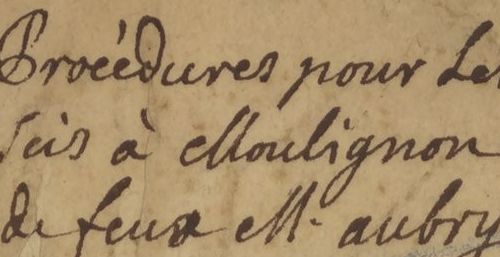 Procédures pour Le
scis à Moulignon
de feux M. aubry